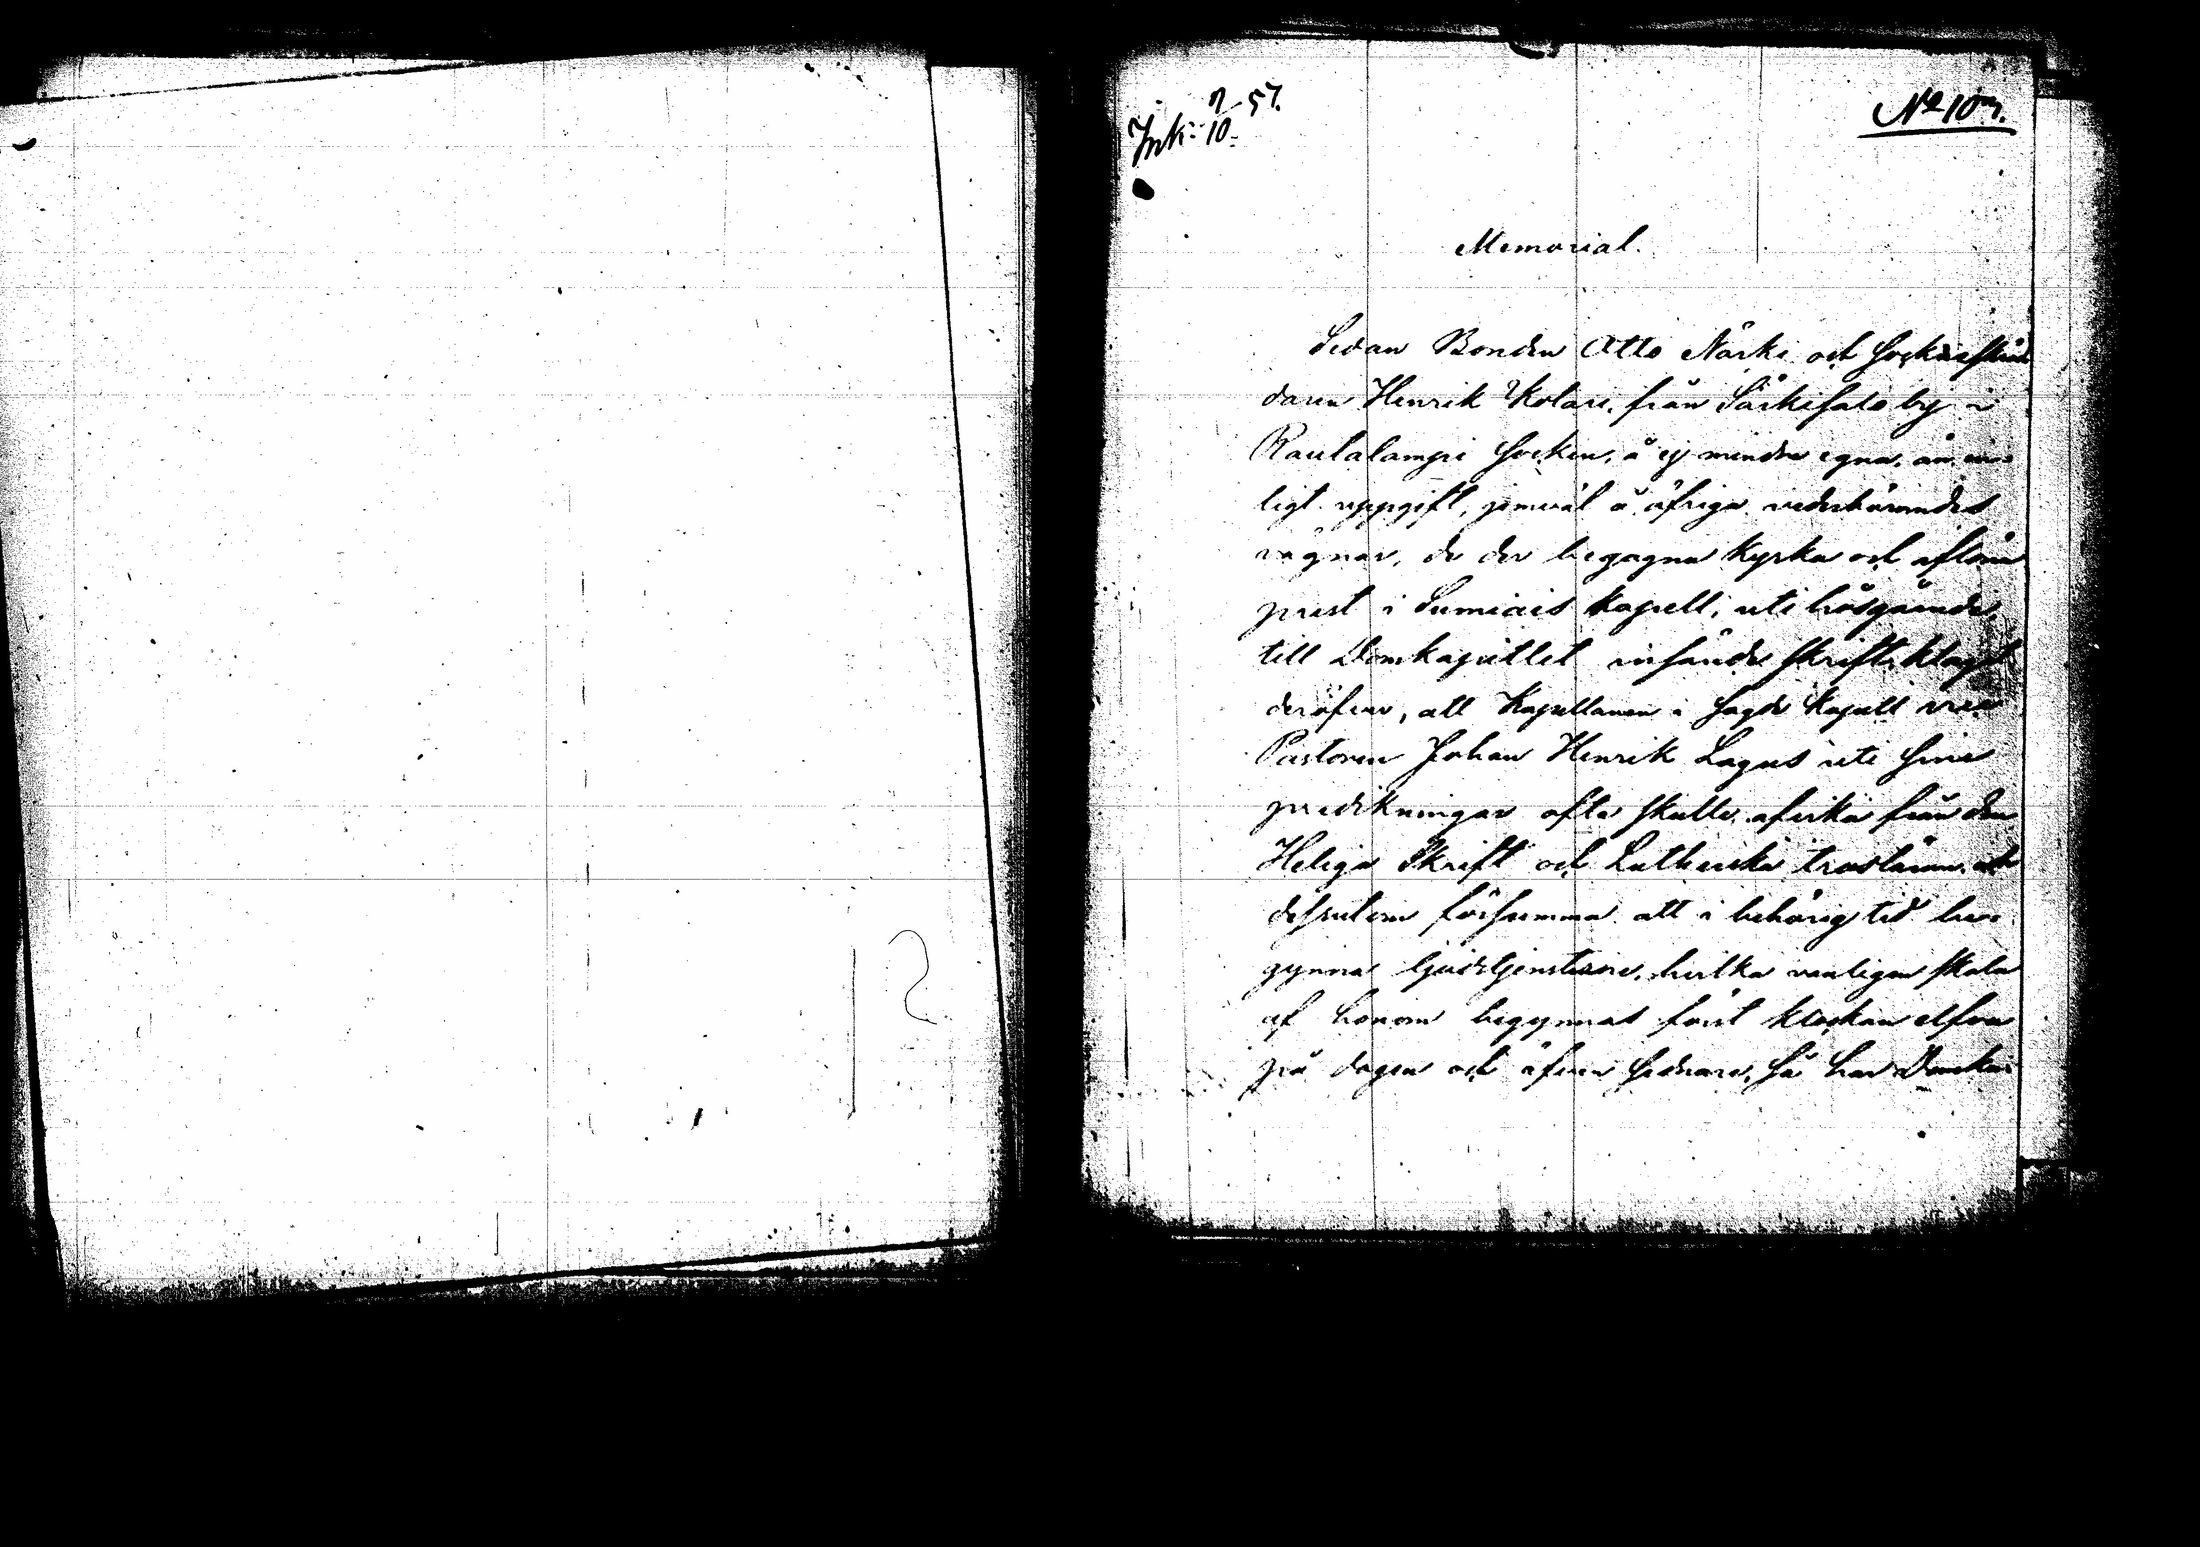 Ink: 7/10 57.
No 107.
Memorial.
Sedan Bonden Otto Närhi och Sockneskräd
daren Henrik Kolari, från Särkisalo by i
Rautalampi Socken, å ej mindre egna, än en-
ligt uppgift, jemväl å öfriga vederbörandes
vägnar, de der begagna kyrka och aflöna
prest i Sumiais kapell, uti högädle,
till Domkapitlet insände skrift klagat
deröfver, att Kapellanen i sagde kapell vice
Pastoren Johan Henrik Lagus uti sine
predikningar ofta skulle afvika från den
Heliga Skrift och Lutherska trosläran, och
dessutom försumma att i behörig tid be-
gynna Gudstjensterne, hvilka vanligen skola
af honom begynnas först klockan elfva
på dagen och äfven sednare, Så har Domka-